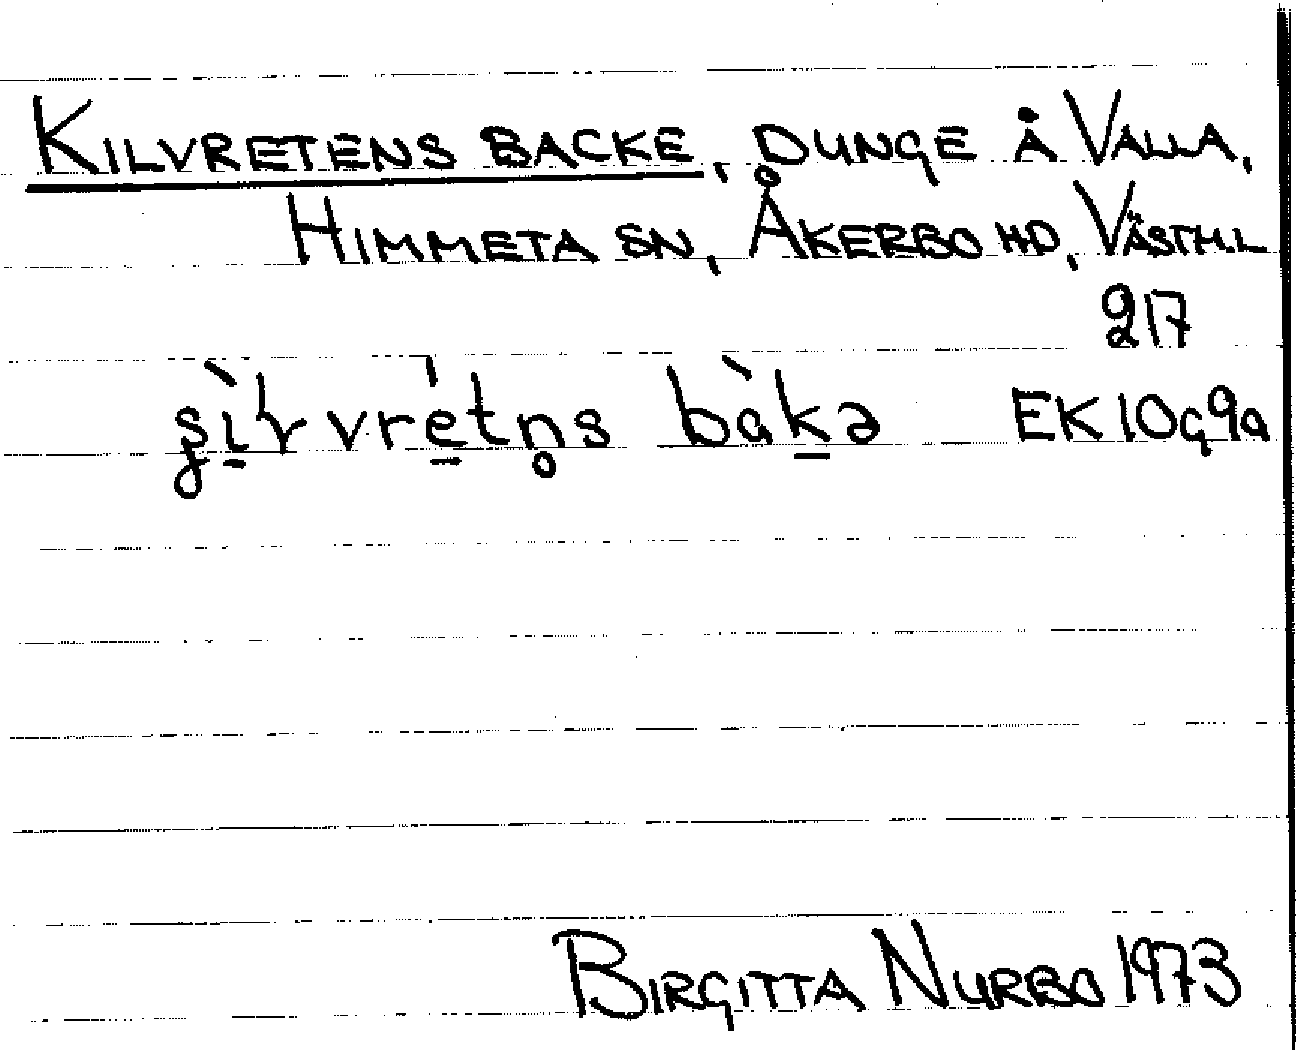 KILVRETENS BACKE, DUNGE Å VALLA,
HIMMETA SN, ÅKERBO HD, VÄSTM.L
217
bàkə EK10g9a
BIRGITTA NURBO 1973